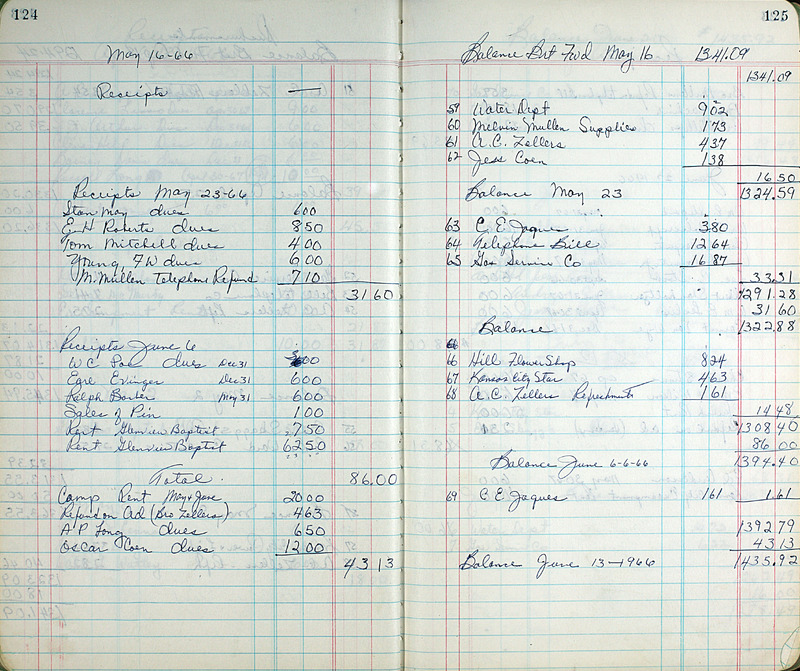 124
May 16-66
Receipts —
Receipts May 23-66
Stan May dues 6 00
E H Roberts dues 8 50
Tom Mitchell dues 4 00
Young, F W dues 6 00
M. Mullen Telephone Refund 7 10
31 60
Receipts June 6
W C dues Dec 31 00
Evinger Dec 31 6 00
Ralph Barber May 31 6 00
Sales of Pin 1 00
Rent Glenview Baptist 7 50
Rent Glenview Baptist 62 50
Total. 86.00
Camp Rent May & June 20 00
Refund on Ad (Bro Zellers) 4 63
A P Long dues 6 50
Oscar Coen dues 12 00
43 13
125
Balance Brt Fwd May 16 1341.09
1341.09
59 Water Dept 9 02
60 Melvin Mullen Supplies 1 73
61 A. C. Zellers 4 37
62 Jess Coen 1 38
16 50
Balance May 23 1324.59
63 C. E Jaques 3 80
64 Telephone Bill 12 64
65 Gas Service Co 16 87
33.31
1291.28
31 60
Balance 1322.88
66
66 Hill Flower Shop 8 24
67 Kansas City Star 4 63
68 A. C. Zellers Refreshments 1 61
14 48
1308 40
86 00
Balance June 6-6-66 1394.40
69 C E Jaques 1 61 1.61
1392 79
43 13
Balance June 13-1966 1435.92